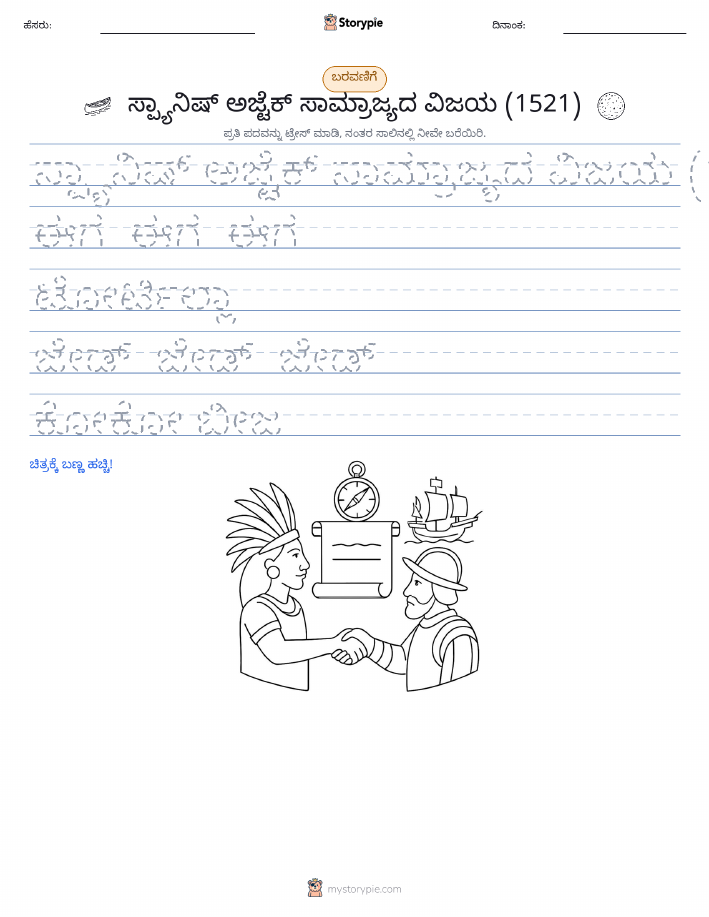 ಹೆಸರು:
Storypie
ದಿನಾಂಕ:
ಬರವಣಿಗೆ
ಸ್ಪ್ಯಾನಿಷ್ ಅಜ್ಟೆಕ್ ಸಾಮ್ರಾಜ್ಯದ ವಿಜಯ (1521)
ಪ್ರತಿ ಪದವನ್ನು ಟ್ರೇಸ್ ಮಾಡಿ, ನಂತರ ಸಾಲಿನಲ್ಲಿ ನೀವೇ ಬರೆಯಿರಿ.
ಸ್ಪ್ಯಾನಿಷ್ ಅಜ್ಟೆಕ್ ಸಾಮ್ರಾಜ್ಯದ ವಿಜಯ (
ಈಗ ಈಗ ಈಗ
ಟೋರ್ಟಿಲ್ಲಾ
ಜೇಡ್ ಜೇಡ್ ಜೇಡ್
ಕೋಕೋ ಬೀಜ
ಚಿತ್ರಕ್ಕೆ ಬಣ್ಣ ಹಚ್ಚಿ!
mystorypie.com